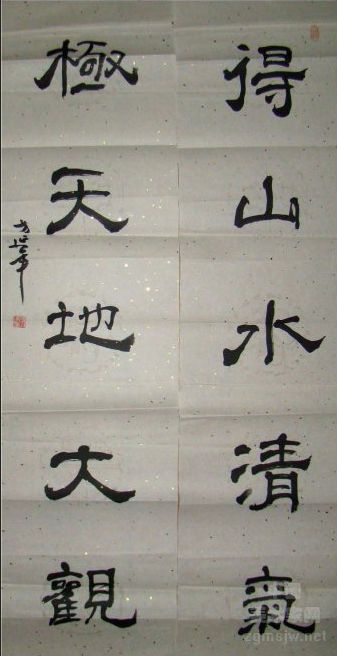 得山水清氣
極天地大觀
zgmsjw.net